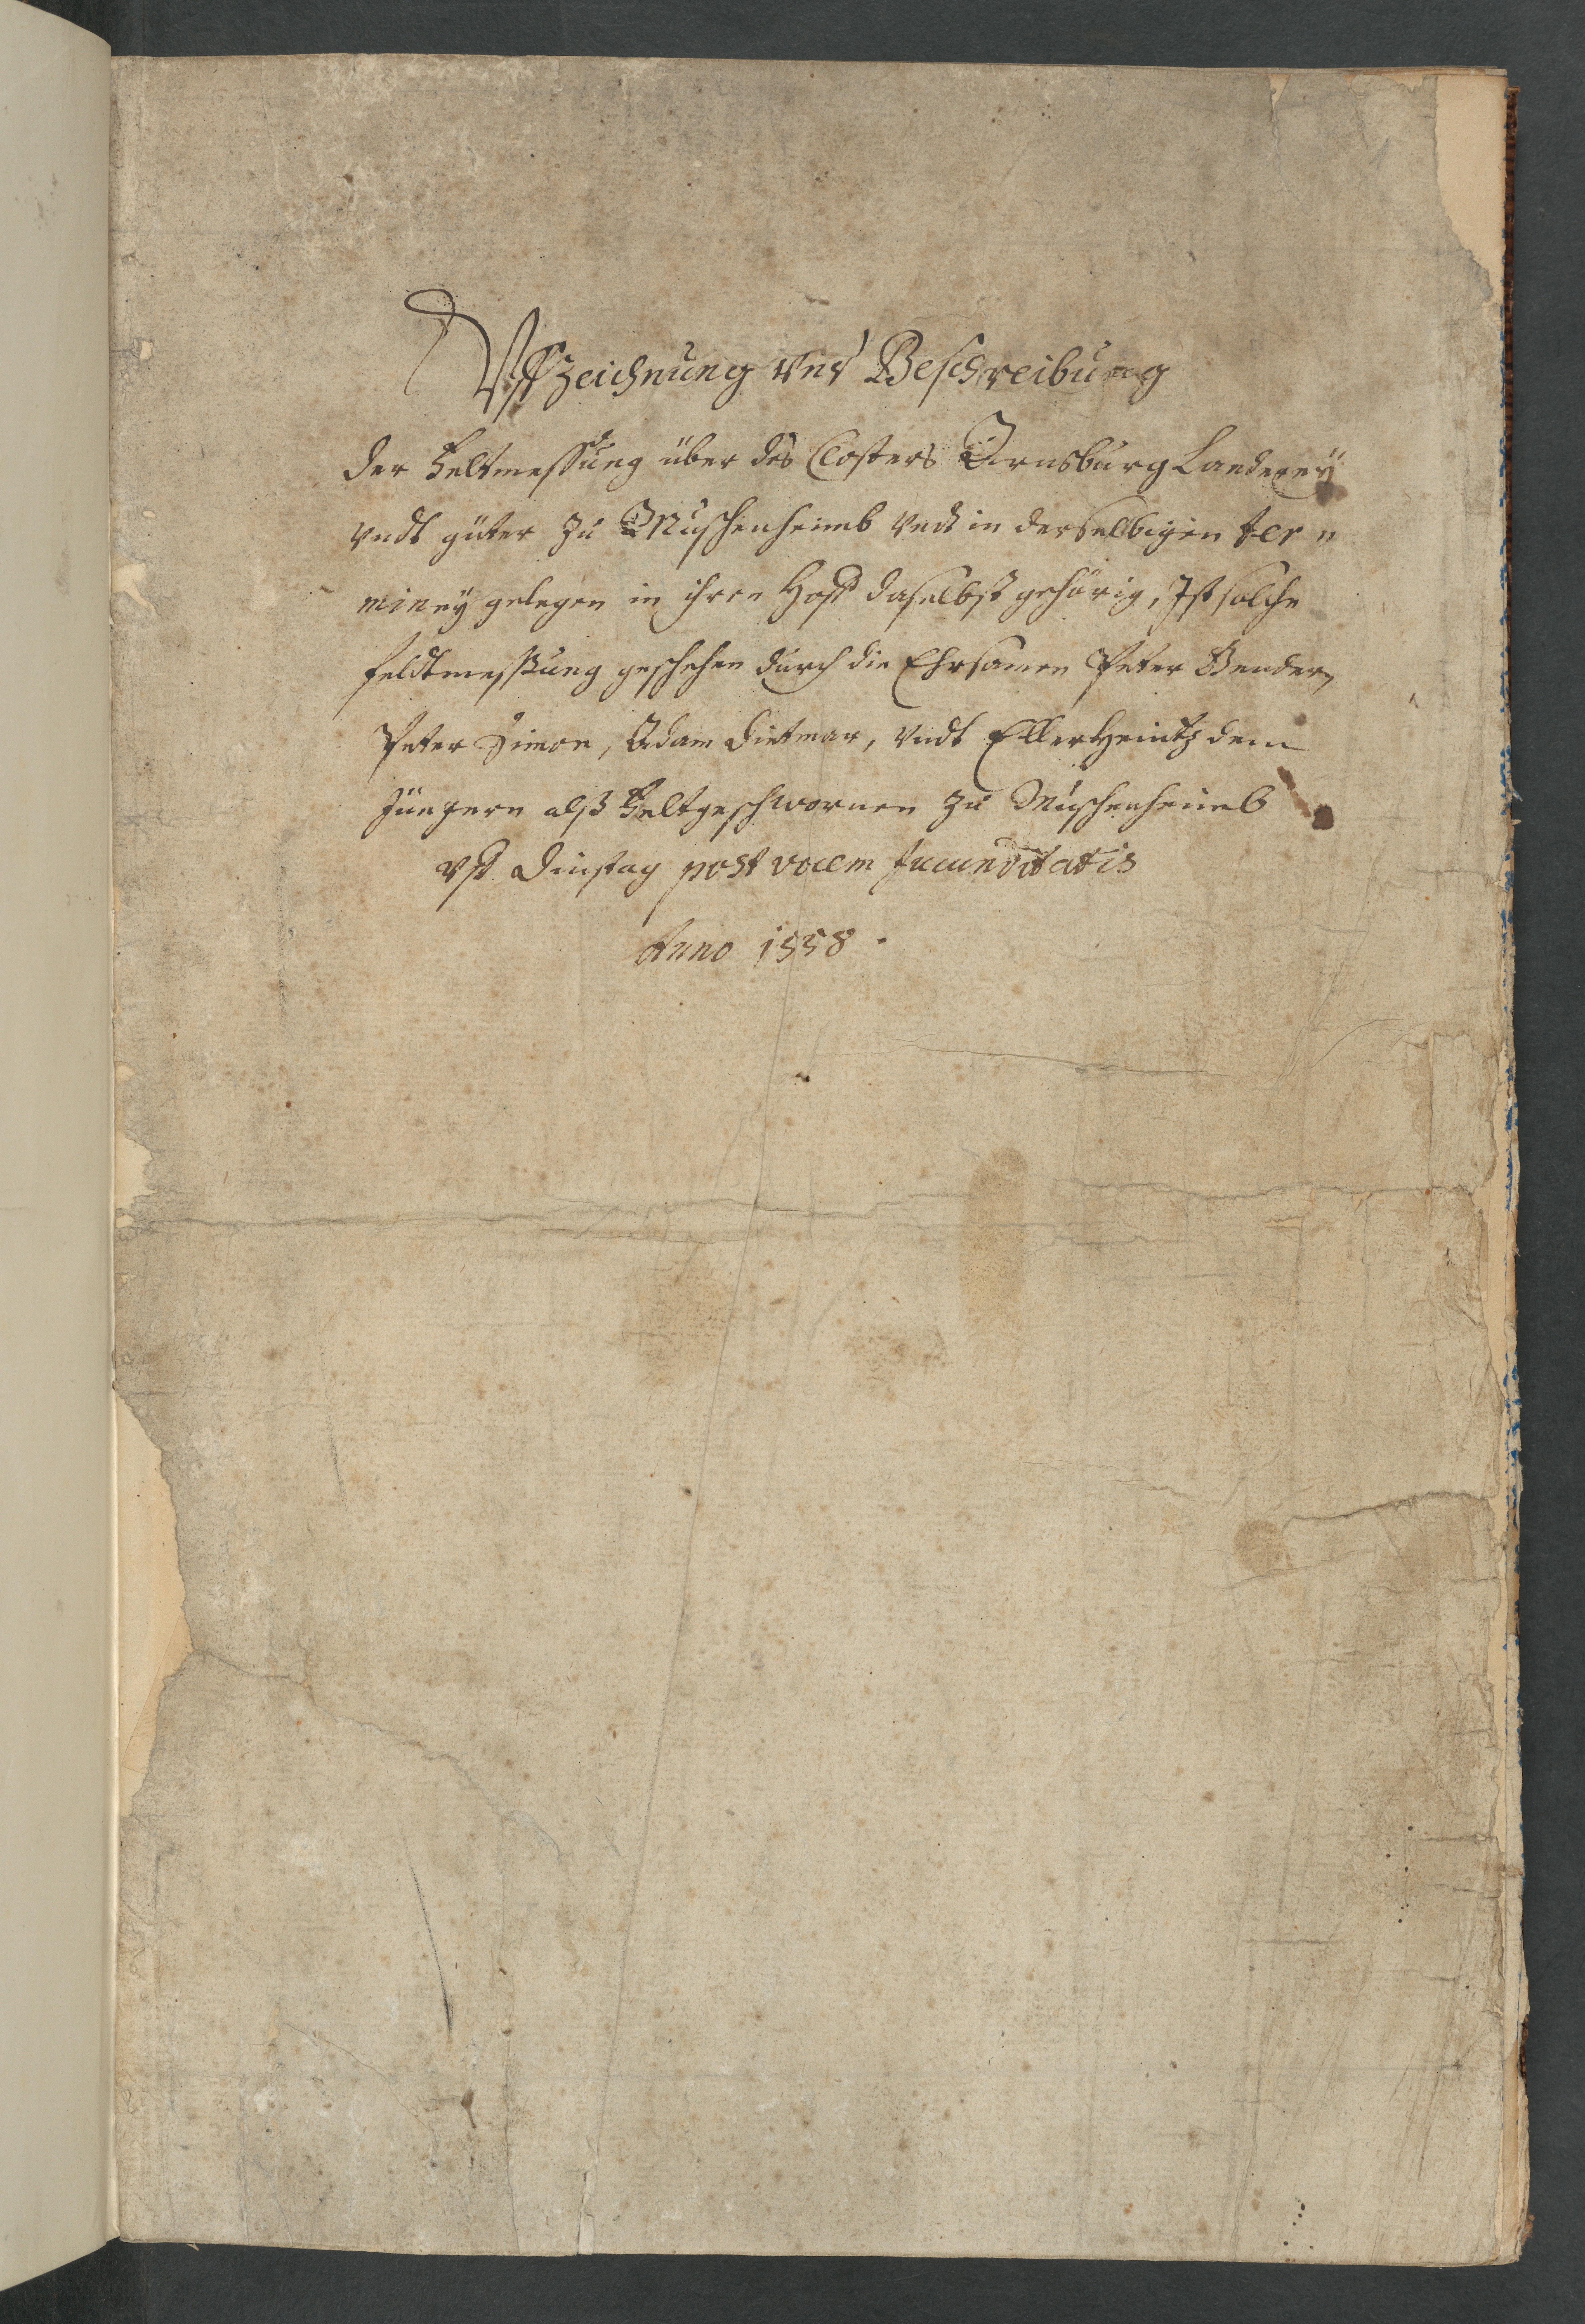 Uffzeichnung vnd Beschreibung
der Feltmessung über des Closters Arnsburg Landerey
vndt güter zu Muschenheimb vndt in derselbigen ter"
miney gelegen in ihren Hoff daselbst gehörig, Ist solche
feldtmessung geschehen durch die Ehrsamen Peter Bender,
Peter Simon, Adam Dietmar, vndt Eller Heintz dem
Jüngern alß Feltgeschwornen zu Muschenheimb
vff Dinstag post vocem Jucunditatis
Anno 1558.